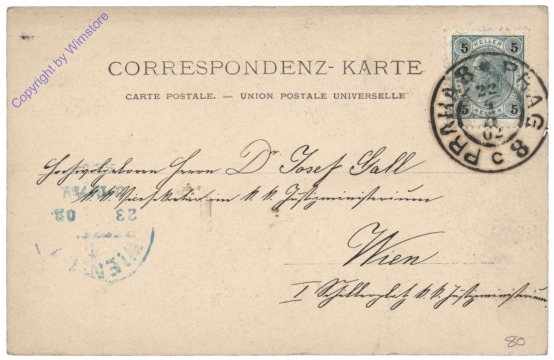 Copyright by Wimstore
CORRESPONDENZ-KARTE
CARTE POSTALE. — UNION POSTALE UNIVERSELLE
5 HELLER 5
5 HELLER 5
PRAHA 8 * PRAG 8 c
22
4
02
Hochwohlgeboren Herrn Dr Josef Gall
k.k. Vicesekretär im k.k. Justizministerium
Wien
I Schillerplatz k.k. Justizministerium
WIEN
23
02
80